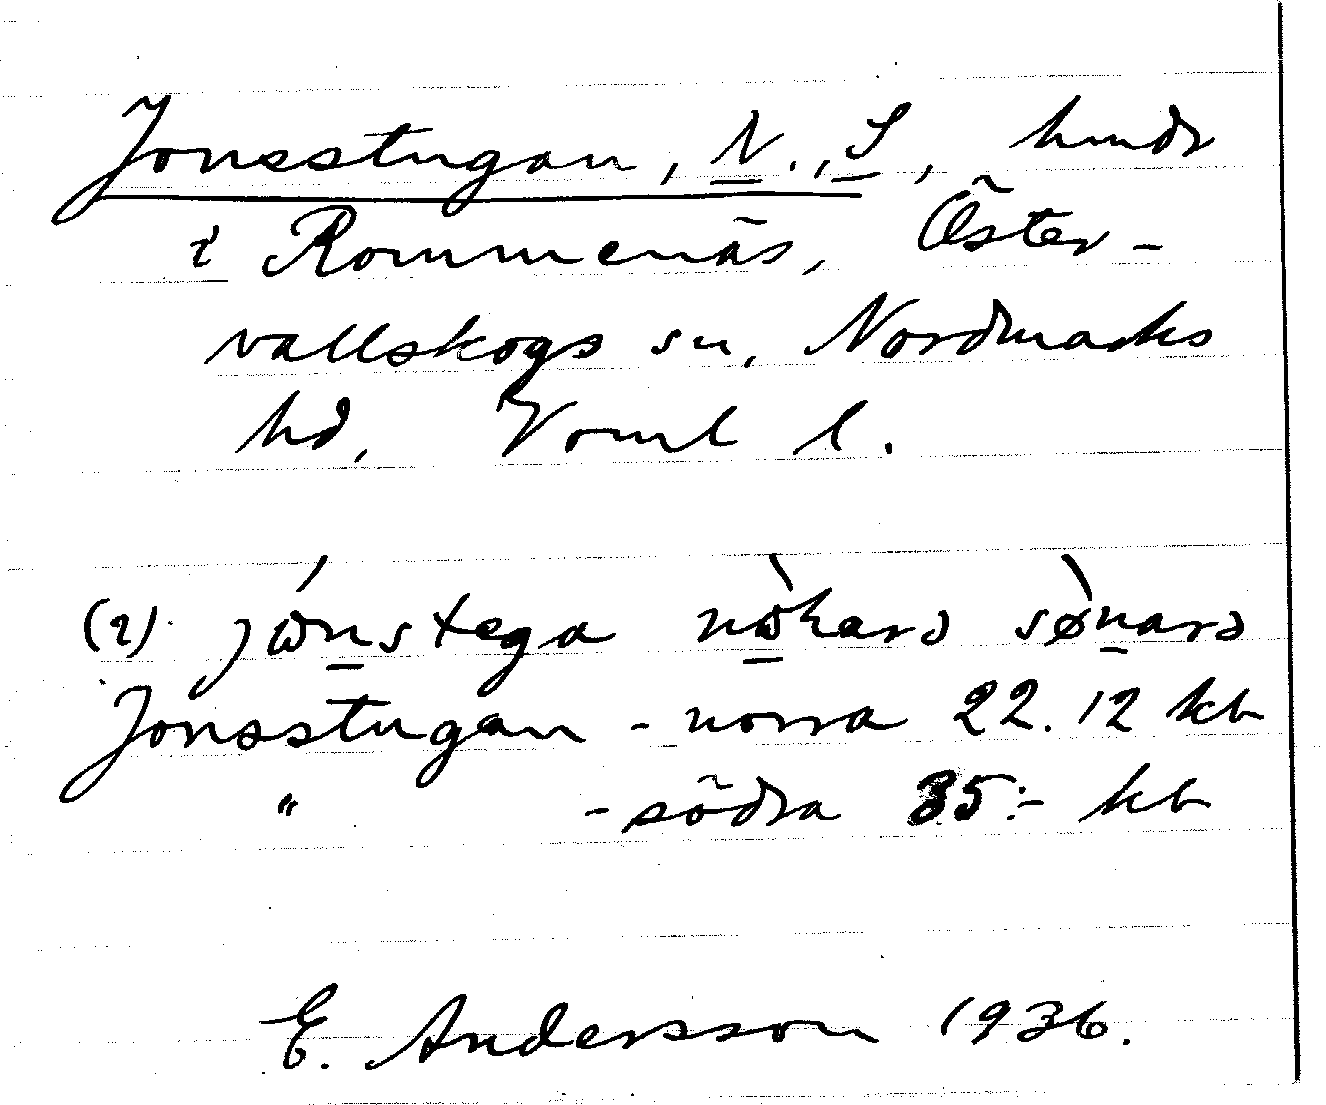 Jonsstugan, N., S, hmdr
i Rommenäs, Öster-
vallskogs sn, Nordmarks
hd, Vrml l.
jónstega
Jonsstugan - norra 22.12 kb
" - södra 35:- kb
E. Andersson 1936.